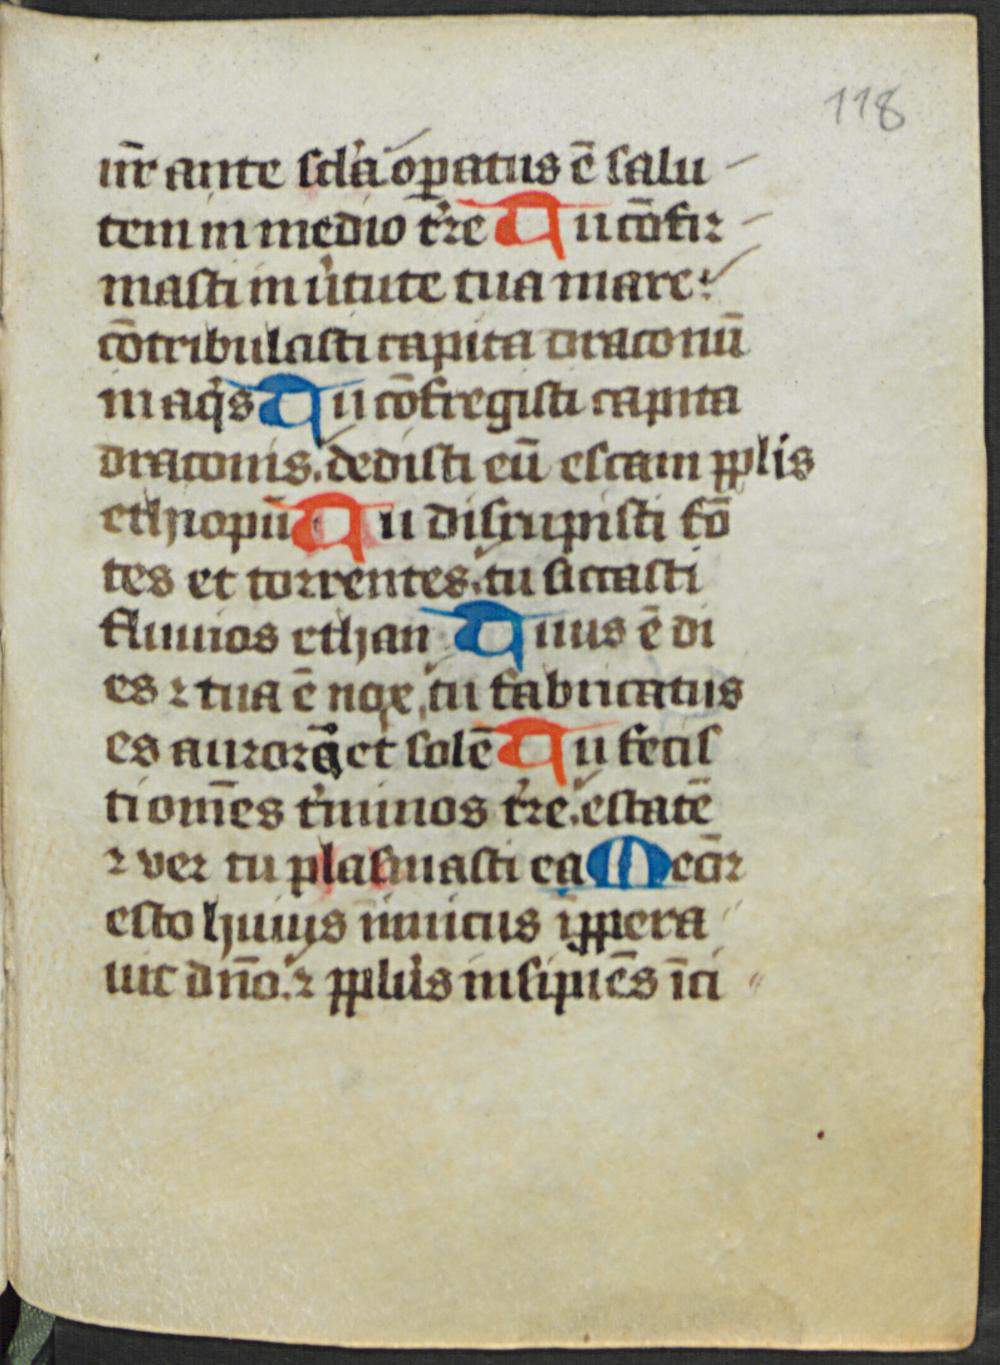 118
nr̄ ante scl̓a op̲atus ē salu
tem in medio tr̓re Tu cōfir
masti in u̓tute tua mare:
cōtribulasti capita draconū
in aqͥs Tu cōfregisti capita
draconis. dedisti eū escam pp̲lis
ethiopū Tu disrupisti fō
tes et torrentes. tu siccasti
fluuios ethan Tuus ē di
es ⁊ tua ē nox, tu fabricatus
es aurorā et solē Tu fecis
ti om̄es t̓minos tr̓re. estatē
⁊ ver tu plasmasti ea Memor
esto huius inimicus īpp̲era
uit dn̄o. ⁊ pp̲lus insipiēs īci